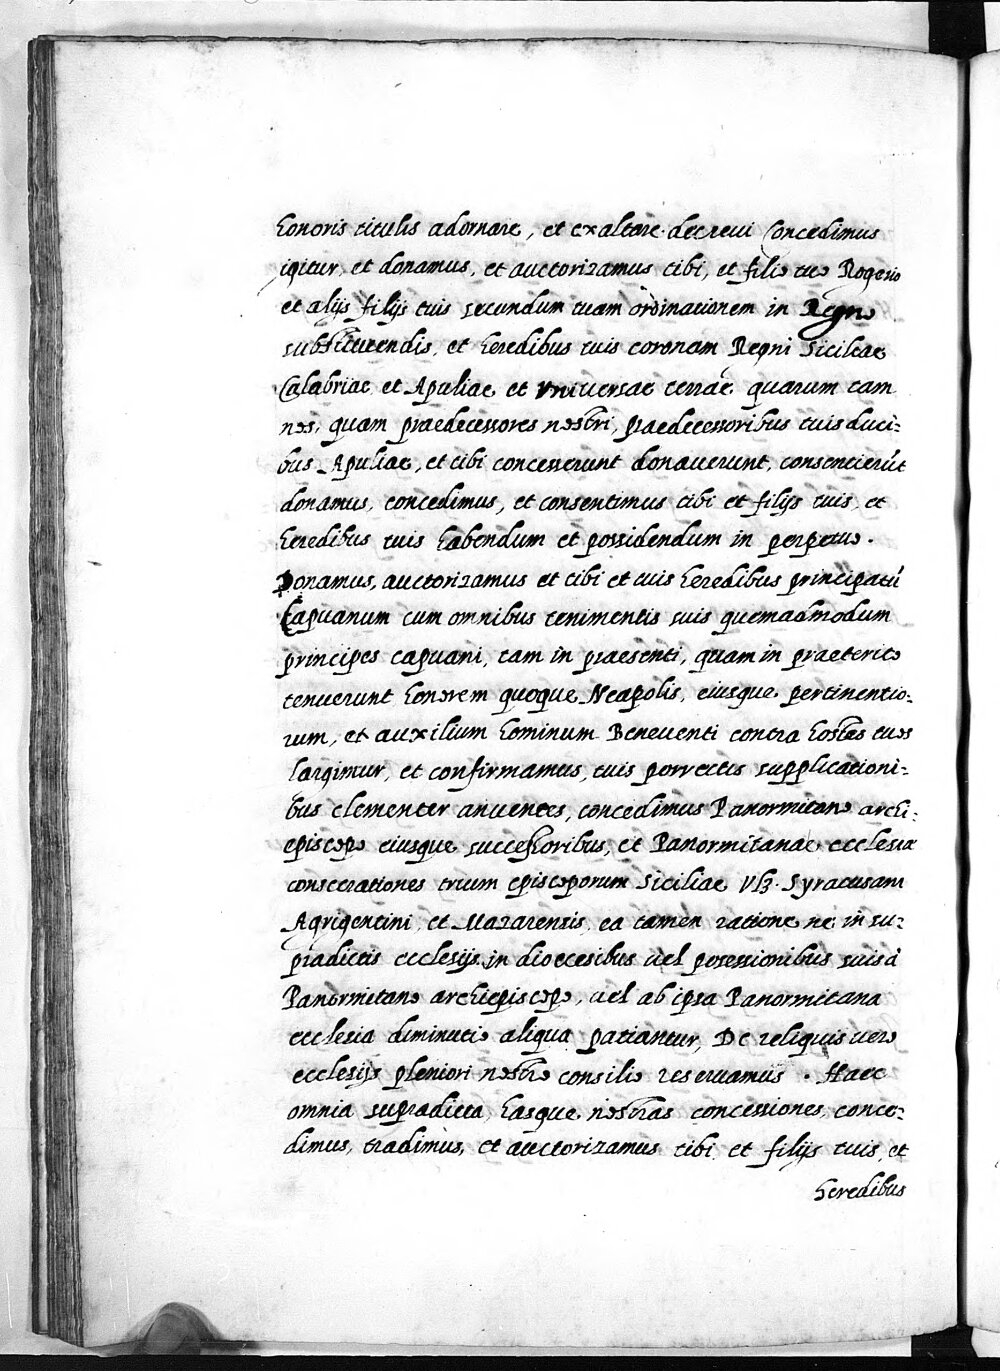 honoris titulis adornare, et exaltare decreui Concedimus
igitur, et donamus, et auctorizamus tibi, et filio tuo Rogerio
et alijs filijs tuis secundum tuam ordinationem in Regno
substituendis, et heredibus tuis coronam Regni Siciliae
Calabriae et Apuliae et Vniuersae terrae quarum tam
nos, quam praedecessores nostri, praedecessoribus tuis duci:
bus Apuliae, et tibi concesserunt donauerunt, consencierũt
donamus, concedimus, et consentimus tibi et filijs tuis, et
heredibus tuis habendum et possidendum in perpetuo.
Donamus, auctorizamus et tibi et tuis heredibus principatũ
Capuanum cum omnibus tenimentis suis quemadmodum
principes capuani, tam in praesenti, quam in praeterito
tenuerunt honorem quoque Neapolis, eiusque pertinentio:
rum, et auxilium hominum Beneuenti contra hostes tuos
largimur, et confirmamus, tuis porrectis supplicationi:
bus clementer anuentes, concedimus Panormitano archi:
episcopo eiusque successoribus, et Panormitanae ecclesia
consecrationes trium episcoporum Siciliae Vɮ. Syracusani
Agrigentini, et Mazarensis, ea tamen ratione ne in su:
pradictis ecclesijs in dioecesibus uel posessionibus suis à
Panormitano archiepiscopo, uel ab ipsa Panormitana
ecclesia diminutio aliqua patiantur, De reliquis uero
ecclesijs pleniori nostro consilio reseruamus. Haec
omnia supradicta hasque nostras concessiones, conce:
dimus, tradimus, et auctorizamus tibi et filijs tuis, et
heredibus